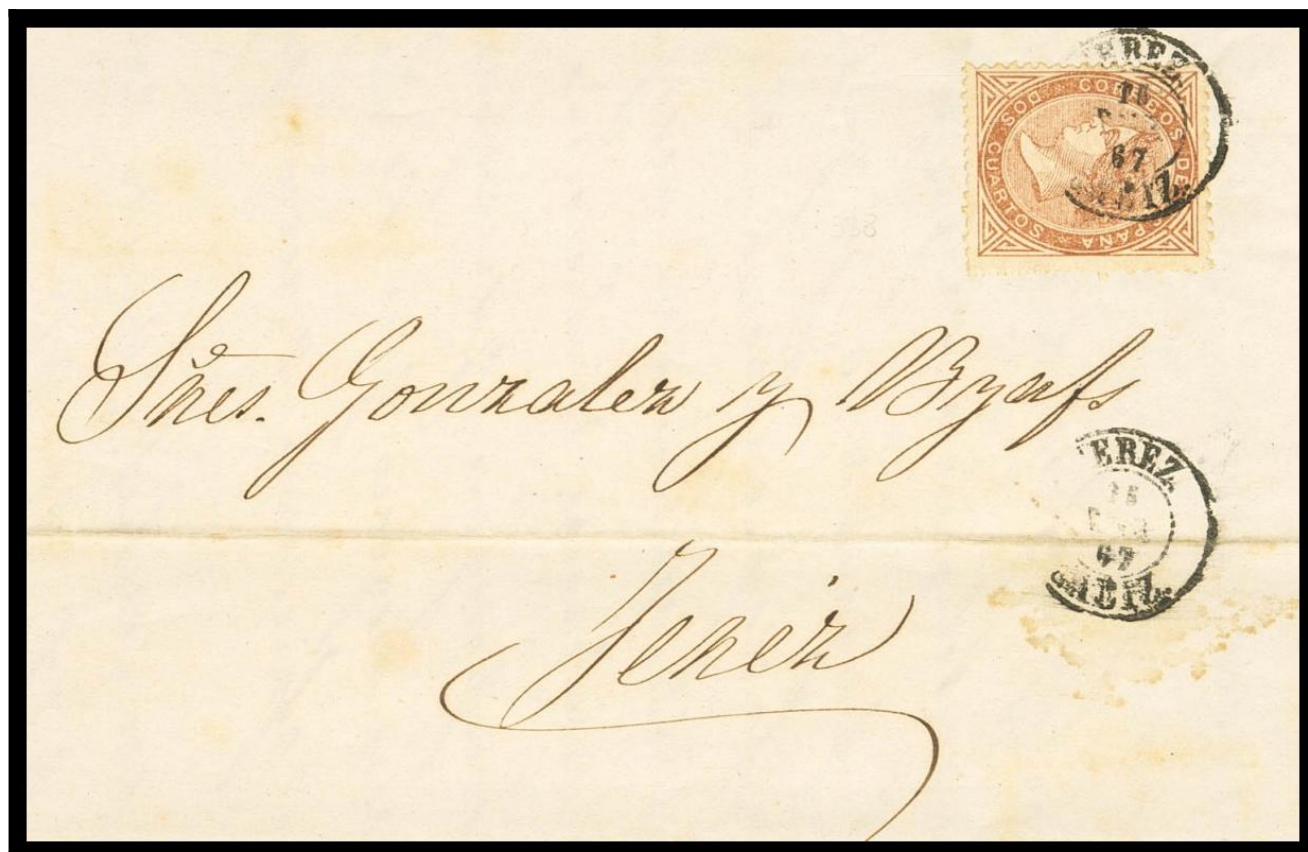 JEREZ
67
CADIZ
CORREOS DE ESPAÑA
DOS CUARTOS
338
Sres. Gonzalez y Byass
JEREZ
67
CADIZ
Jerez